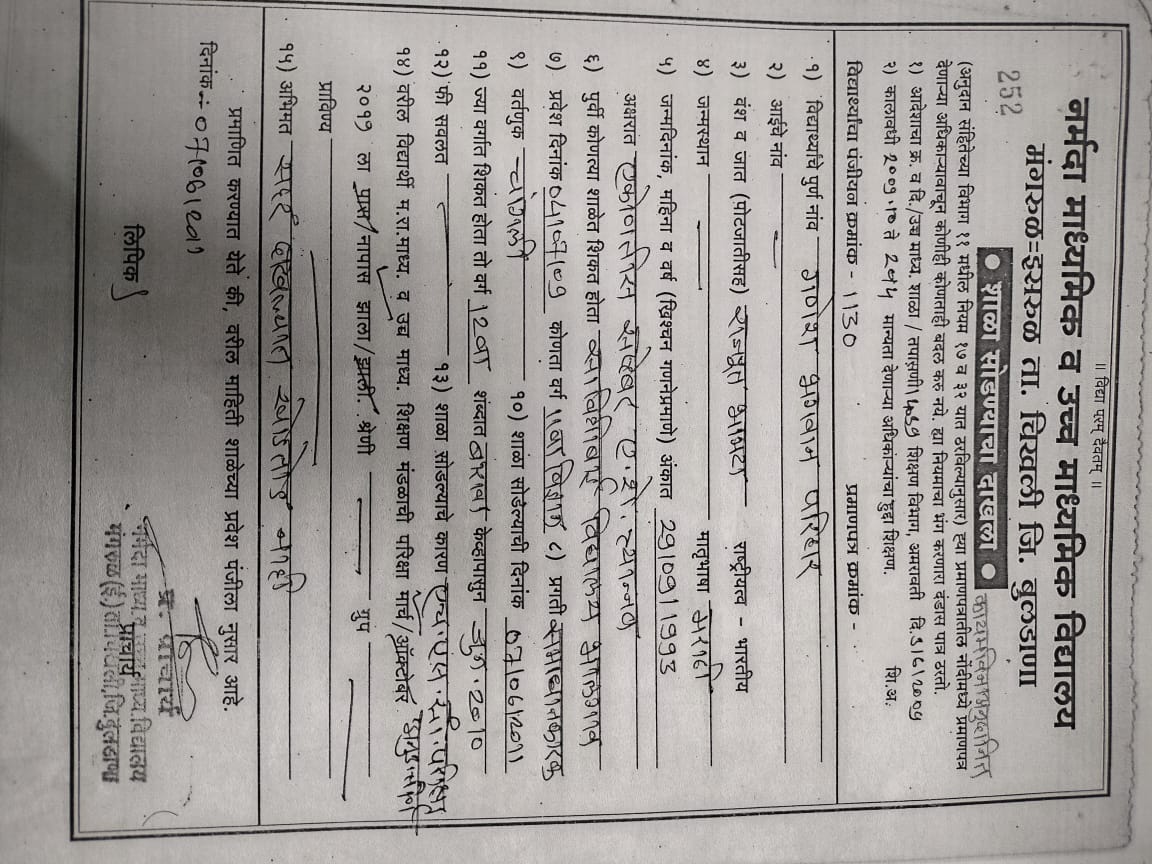 ॥ विद्या परम् दैवतम् ॥
नर्मदा माध्यमिक व उच्च माध्यमिक विद्यालय
मंगरुळ=इसरुळ ता. चिखली जि. बुलडाणा
252
● शाळा सोडण्याचा दाखला ●
कायम विना अनुदानित
(अनुदान संहितेच्या विभाग ११ मधील नियम १७ व ३२ यात ठरविल्यानुसार) ह्या प्रमाणपत्रातील नोंदीमध्ये प्रमाणपत्र
देणाऱ्या अधिकाऱ्यावाचून कोणीही कोणताही बदल करु नये. ह्या नियमाचा भंग करणारा दंडास पात्र ठरतो.
१) आदेशाचा क्र. व दि./उच्च माध्य. शाळा / तपासणी शिक्षण विभाग, अमरावती दि.
२) कालावधी ते मान्यता देणाऱ्या अधिकाऱ्यांचा हुद्दा शिक्षण. शि.अ.
विद्यार्थ्याचा पंजीयन क्रमांक - 1130 प्रमाणपत्र क्रमांक -
१) विद्यार्थ्याचे पुर्ण नांव गणेश भगवान परिहार
२) आईचे नांव
३) वंश व जात (पोटजातीसह) राजपूत भामटा राष्ट्रीयत्व - भारतीय
४) जन्मस्थान मातृभाषा मराठी
५) जन्मदिनांक, महिना व वर्ष (ख्रिश्चन गणनेप्रमाणे) अंकात 29।09।1993
अक्षरात एकोणतीस सप्टेंबर ए.शे.त्र्यान्नव
६) पुर्वी कोणत्या शाळेत शिकत होता विद्यालय
७) प्रवेश दिनांक कोणता वर्ग ११वा विज्ञान ८) प्रगती समाधानकारक
९) वर्तणुक चांगली १०) शाळा सोडल्याची दिनांक ०७।०६।२०११
११) ज्या वर्गात शिकत होता तो वर्ग 12वा शब्दात बारावा केव्हापासुन जुन.2010
१२) फी सवलत १३) शाळा सोडल्याचे कारण एच.एस.सी.परिक्षा
१४) वरील विद्यार्थी म.रा.माध्य. व उच्च माध्य. शिक्षण मंडळाची परिक्षा मार्च/ऑक्टोबर
२०११ ला पास/नापास झाला/झाली. श्रेणी गुण
प्राविण्य
१५) अभिमत
प्रमाणित करण्यात येते की, वरील माहिती शाळेच्या प्रवेश पंजीला नुसार आहे.
दिनांक-: ०७।०६।२०११
लिपिक
प्र. प्राचार्य
प्राचार्य
नर्मदा माध्य. व उच्च माध्य विद्यालय
मंगरुळ (इ.) ता. चिखली, जि. बुलडाणा